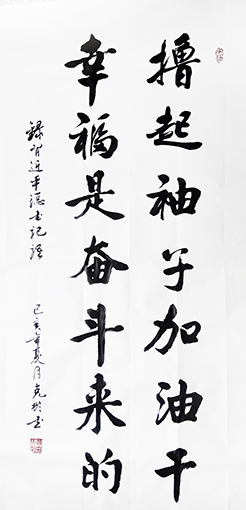 撸起袖子加油干
幸福是奋斗来的
录习近平总书记语
己亥年夏月克彬书